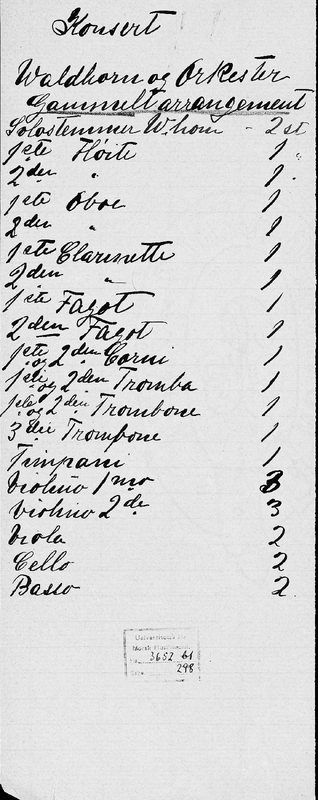 Konsert
Waldhorn og Orkester
Gammelt arrangement
Solostemmer W.horn - 2 st
1ste Fløite 1 "
2den " 1 "
1ste Oboe 1
2den " 1
1ste Clarinette 1
2den " 1
1ste Fagot 1
2den Fagot 1
1ste og 2den Corni 1
1ste og 2den Tromba 1
1ste og 2den Trombone 1
3die Trombone 1
Timpani 1
Violino 1mo 3
Violino 2do 3
Viola 2
Cello 2
Basso 2
Norsk
3652 b1
298